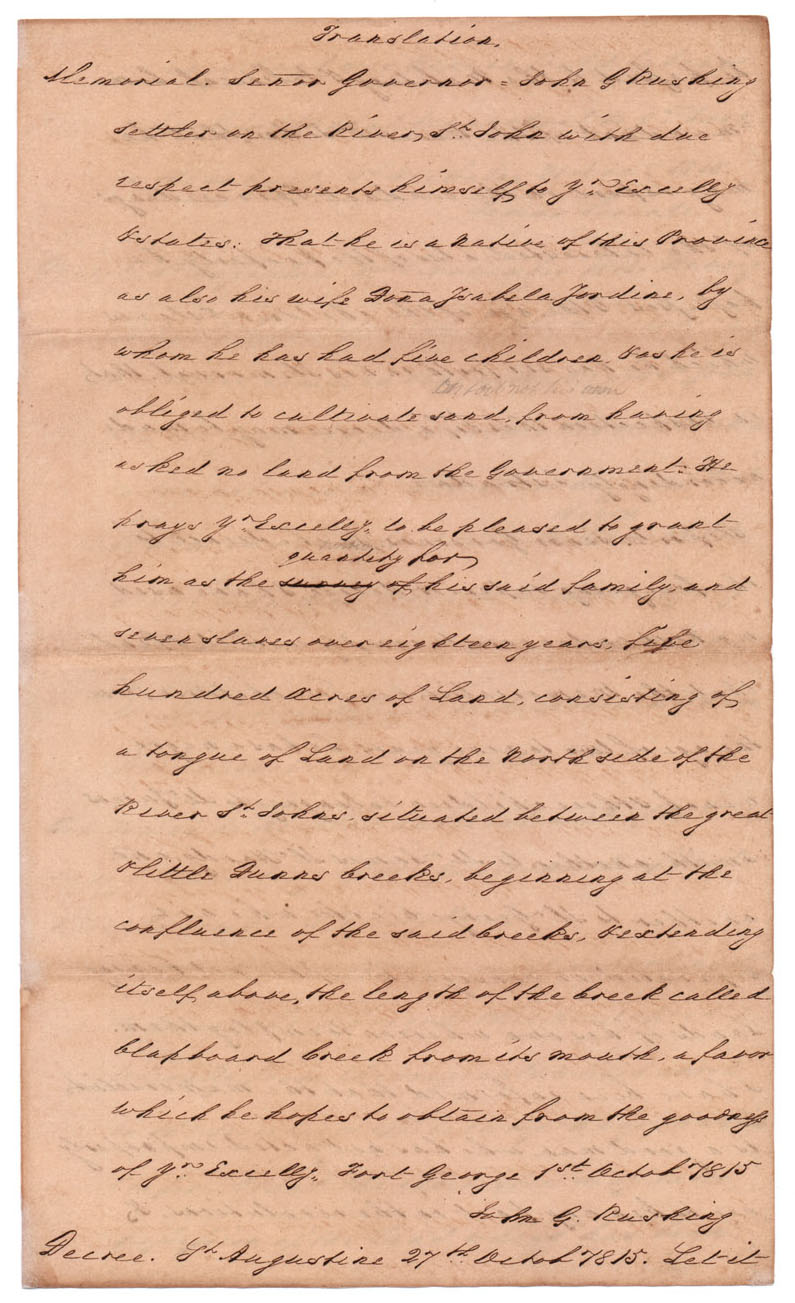 Translation.
Memorial. Señor Governor = John G Rushing
settler on the River, St. John with due
respect presents himself to Yr. Excelly
& states: That he is a Native of this Province
as also his wife Doña Isabela Jordine, by
whom he has had five children, & as he is
not his own
obliged to cultivate land, from having
asked no land from the Government: He
prays Yr. Excelly. to be pleased to grant
quantity for
him as the survey of his said family, and
seven slaves over eighteen years, five
hundred Acres of Land, consisting of
a tongue of Land on the North side of the
River St. Johns, situated between the great
& little Dunns Creeks, beginning at the
confluence of the said Creeks, & extending
itself above, the length of the Creek called
Clapboard Creek from its mouth, a favor
which he hopes to obtain from the goodness
of Yr. Excelly. Fort George 1st. Octob 1815
John G. Rushing
Decree. St. Augustine 27th Octob 1815. Let it